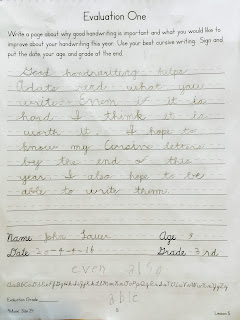 Evaluation One
Write a page about why good handwriting is important and what you would like to
improve about your handwriting this year. Use your best cursive writing. Sign and
put the date, your age, and grade at the end.
Good handwriting helps
read what you
write. Even if it is
hard I think it is
worth it. I hope to
know my Cursive letters
by the end of this
year. I also hope to be
able to write them.
Name John Age 8
Date Grade 3rd
even
able
Evaluation Grade
5
Lesson 5